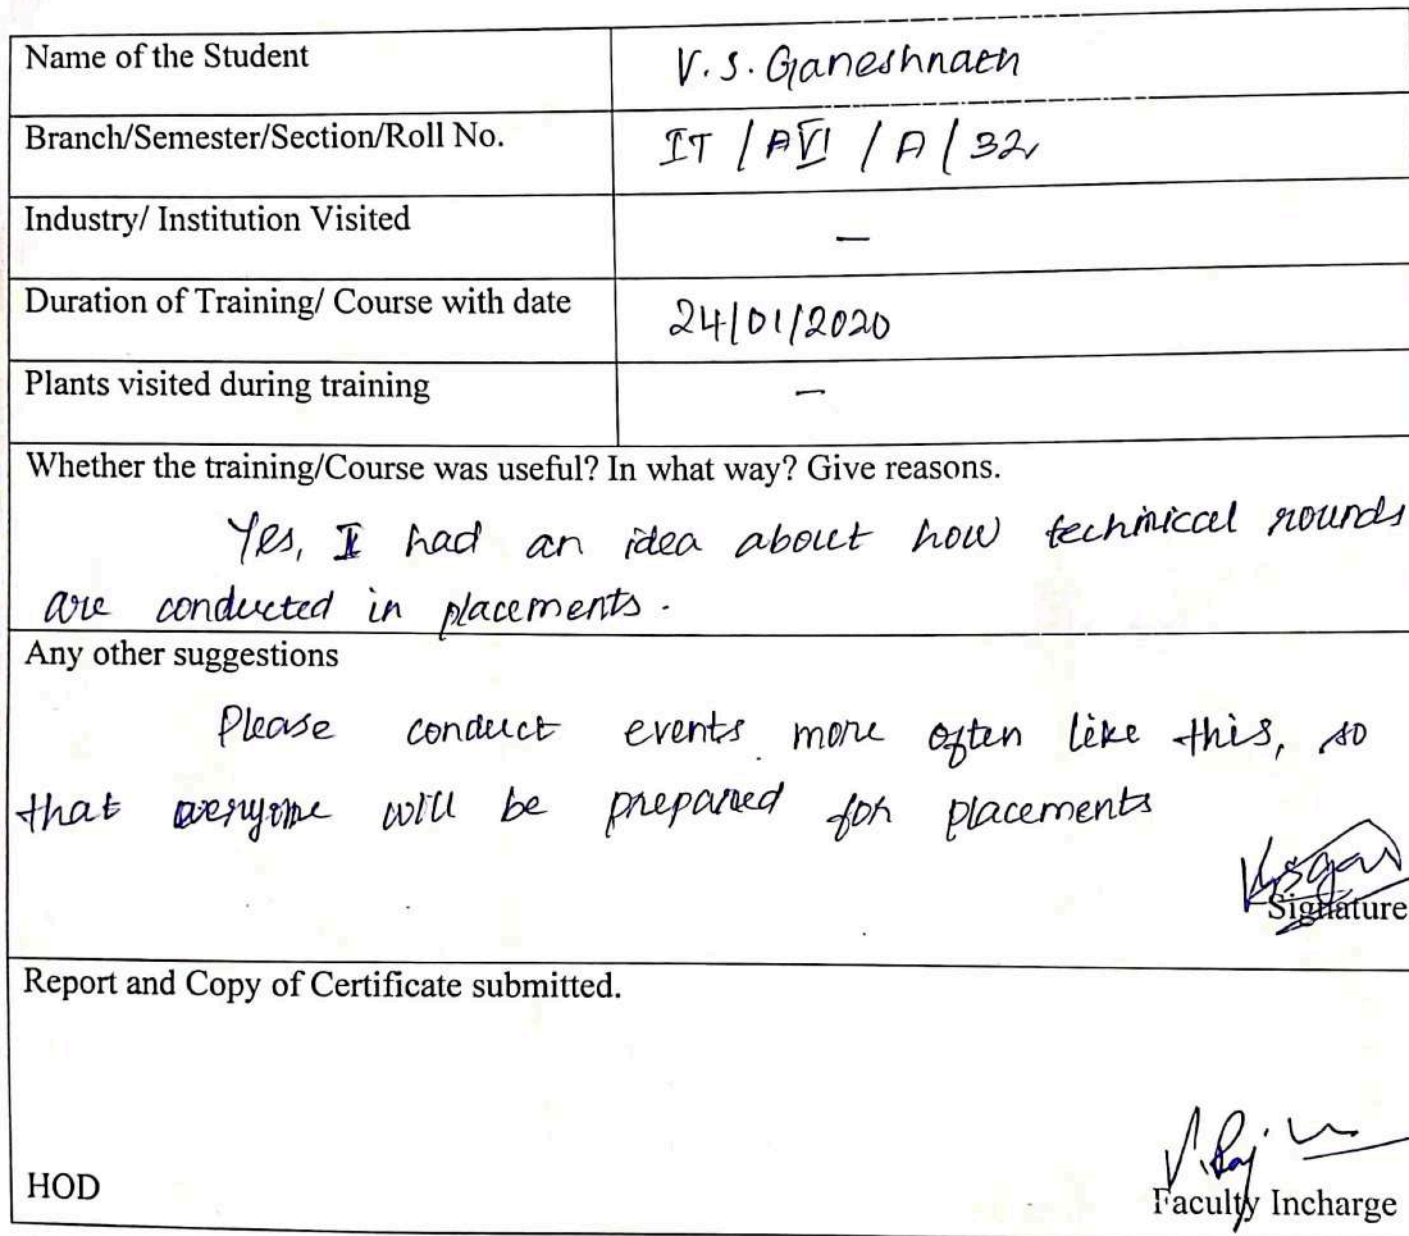 Name of the Student V.S. Ganeshnath
Branch/Semester/Section/Roll No. IT / VI / A / 32
Industry/ Institution Visited —
Duration of Training/ Course with date 24/01/2020
Plants visited during training —
Whether the training/Course was useful? In what way? Give reasons.
Yes, I had an idea about how technical rounds
are conducted in placements.
Any other suggestions
Please conduct events more often like this, so
that everyone will be prepared for placements
Signature
Report and Copy of Certificate submitted.
HOD
Faculty Incharge